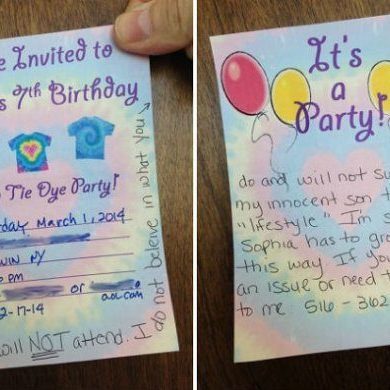 e Invited to
s 7th Birthday
Tie Dye Party!
day March 1, 2014
WIN NY
PM
or
aol.com
2-17-14
will NOT attend. I
do not beleive in what you
It's
a
Party!
do and will not su
my innocent son
"lifestyle" I'm s
Sophia has to gro
this way If you
an issue or need t
to me 516-362